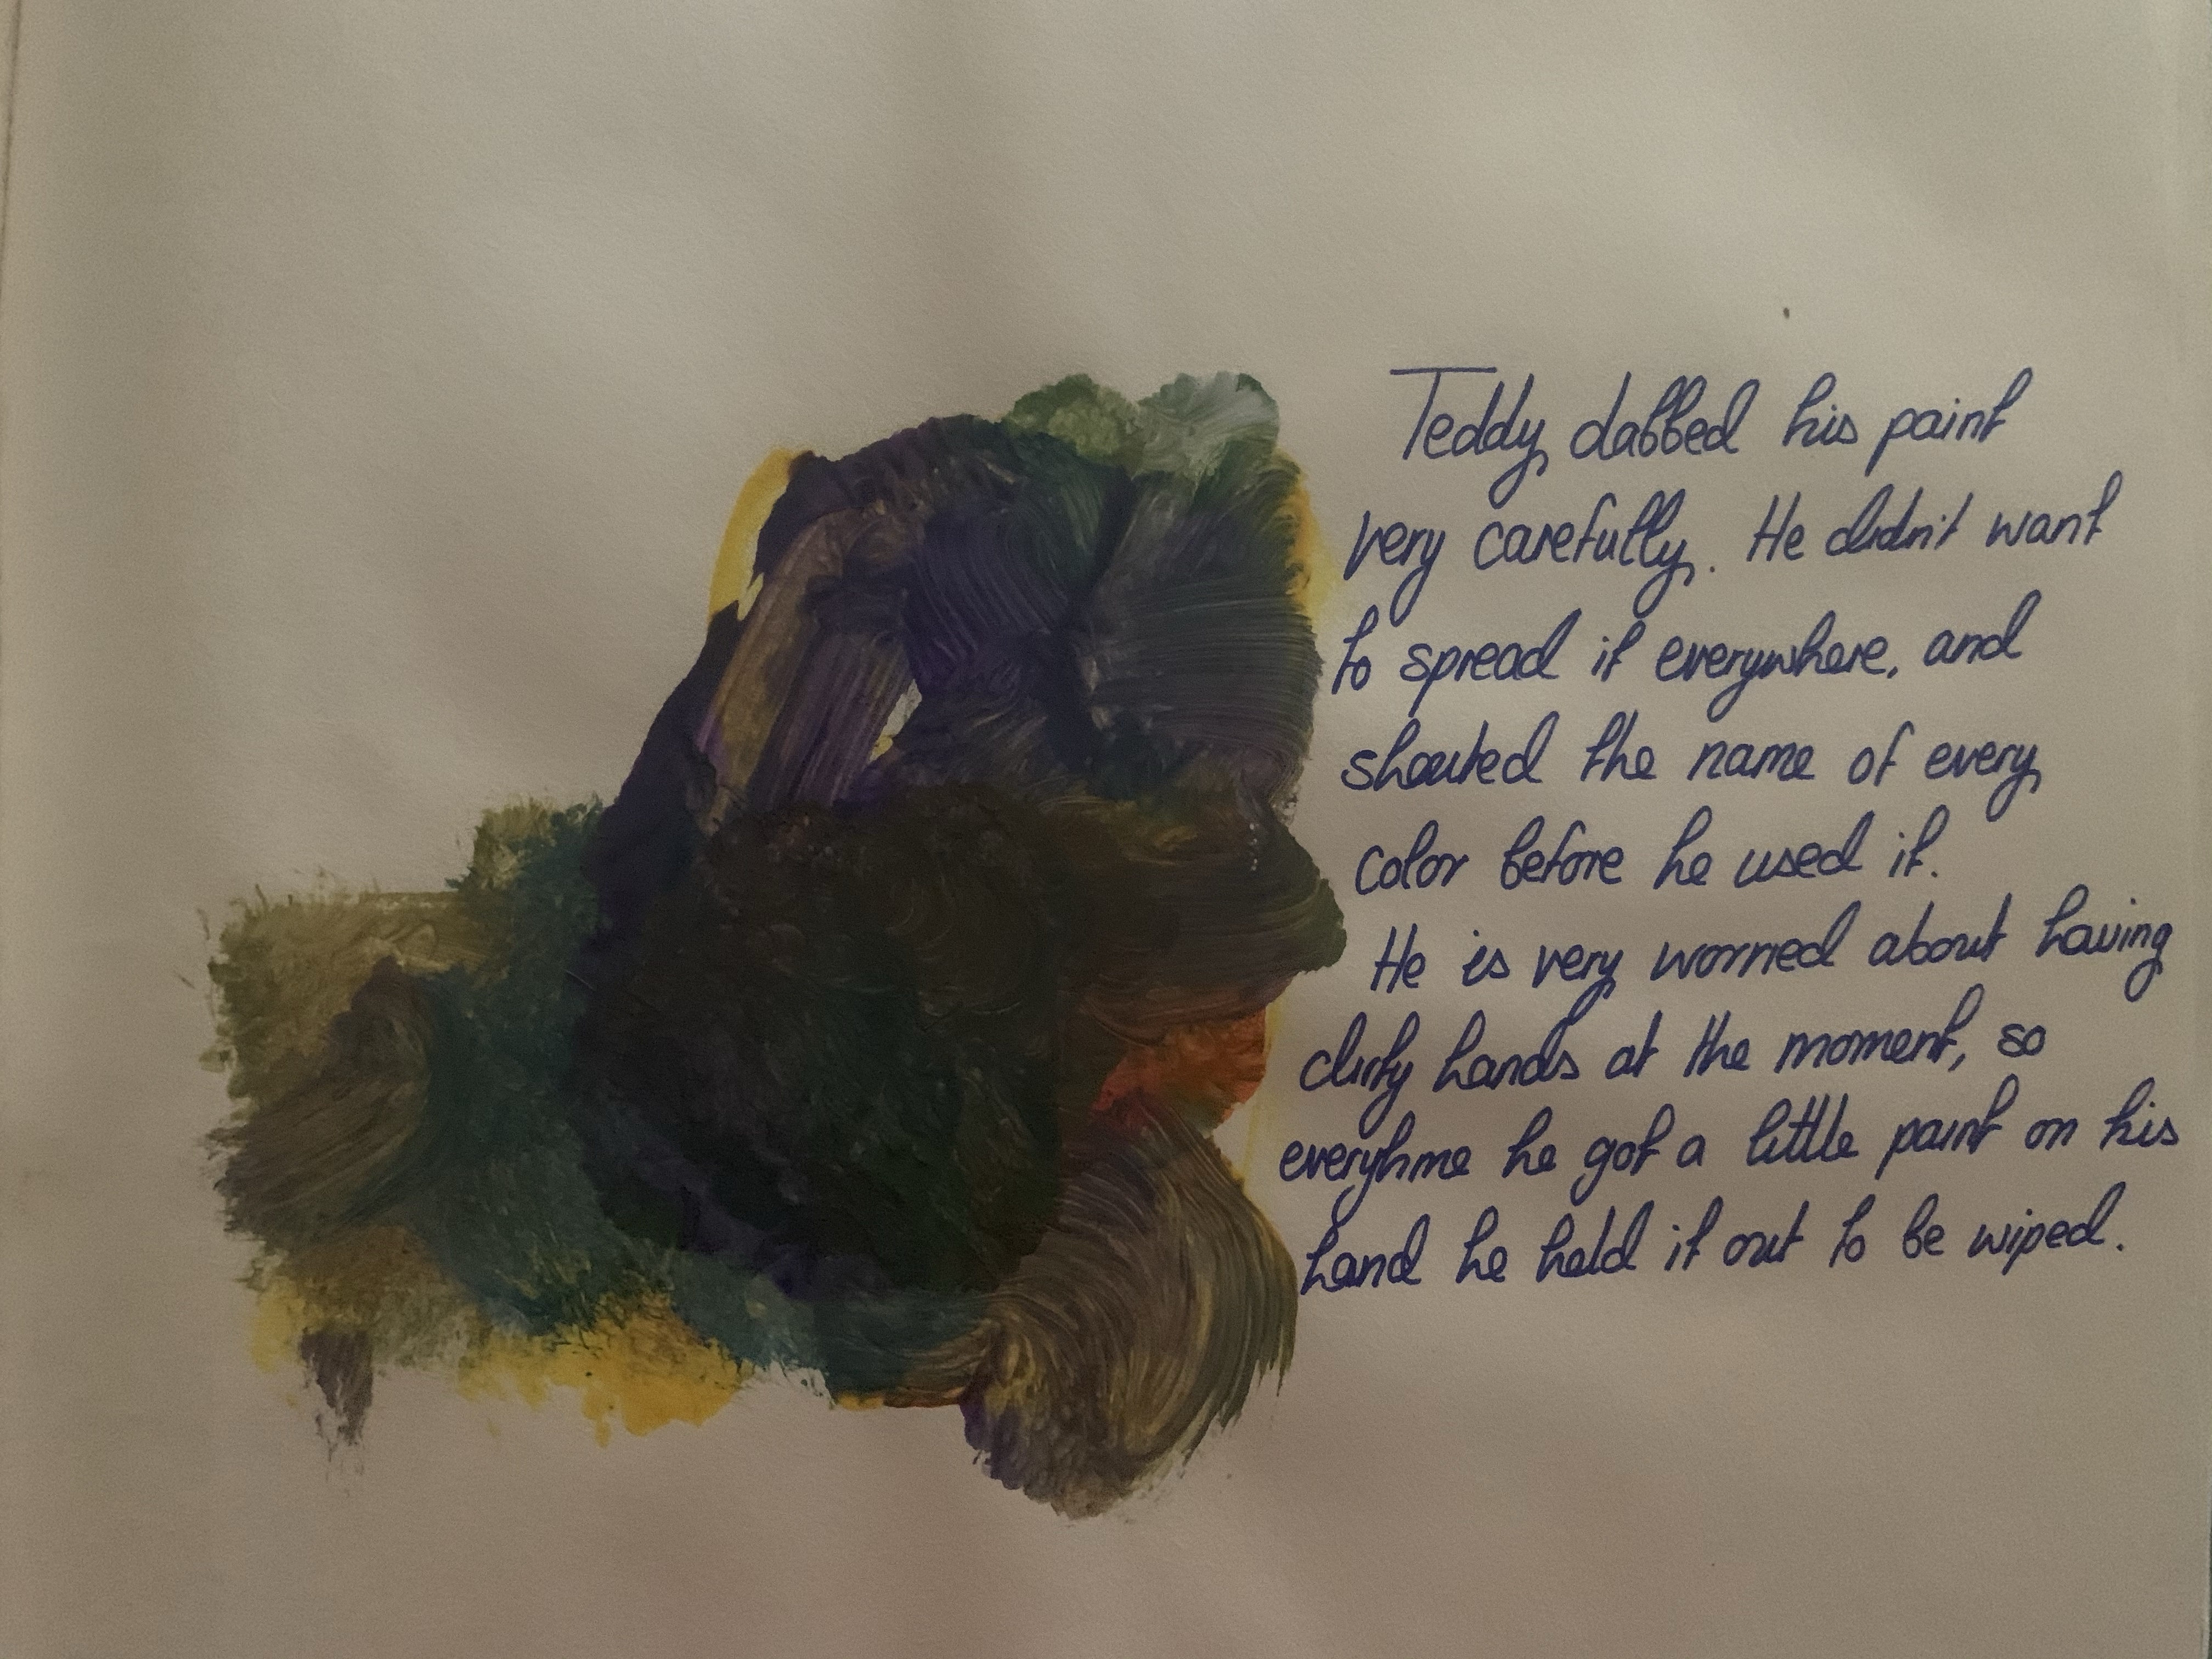 Teddy dabbed his paint
very carefully. He didn't want
to spread it everywhere, and
shouted the name of every
color before he used it.
He is very worried about having
dirty hands at the moment, so
everytime he got a little paint on his
hand he held it out to be wiped.